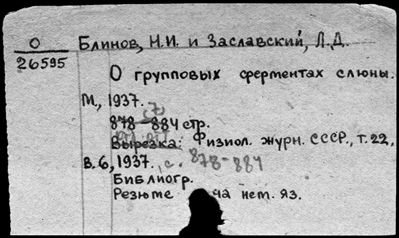 О
26595
Блинов, Н.И. и Заславский, Л.Д.
О групповых ферментах слюны.
М., 1937.
(7)
878-884 стр.
Вырезка: Физиол. журн. СССР, т.22,
в.6, 1937. с. 878-884
Библиогр.
Резюме на нем. яз.